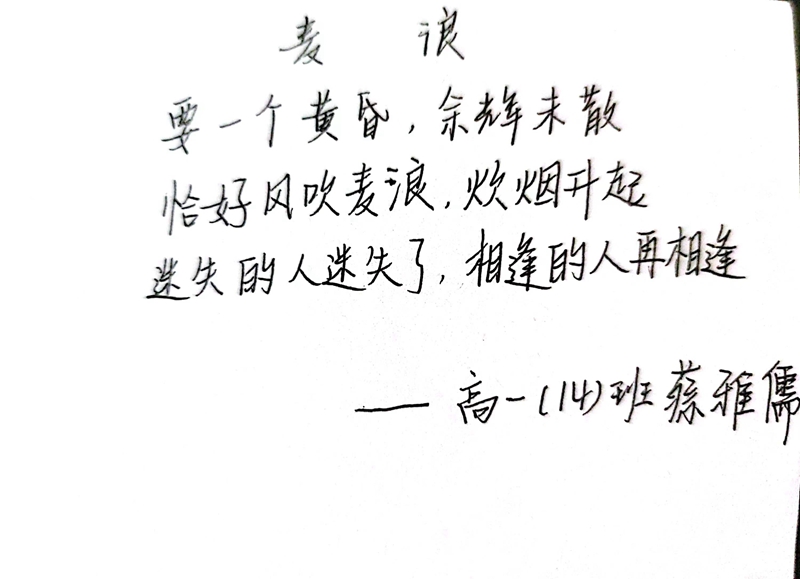 麦 浪
要一个黄昏，余辉未散
恰好风吹麦浪，炊烟升起
迷失的人迷失了，相逢的人再相逢
——高一(14)班蔡雅儒